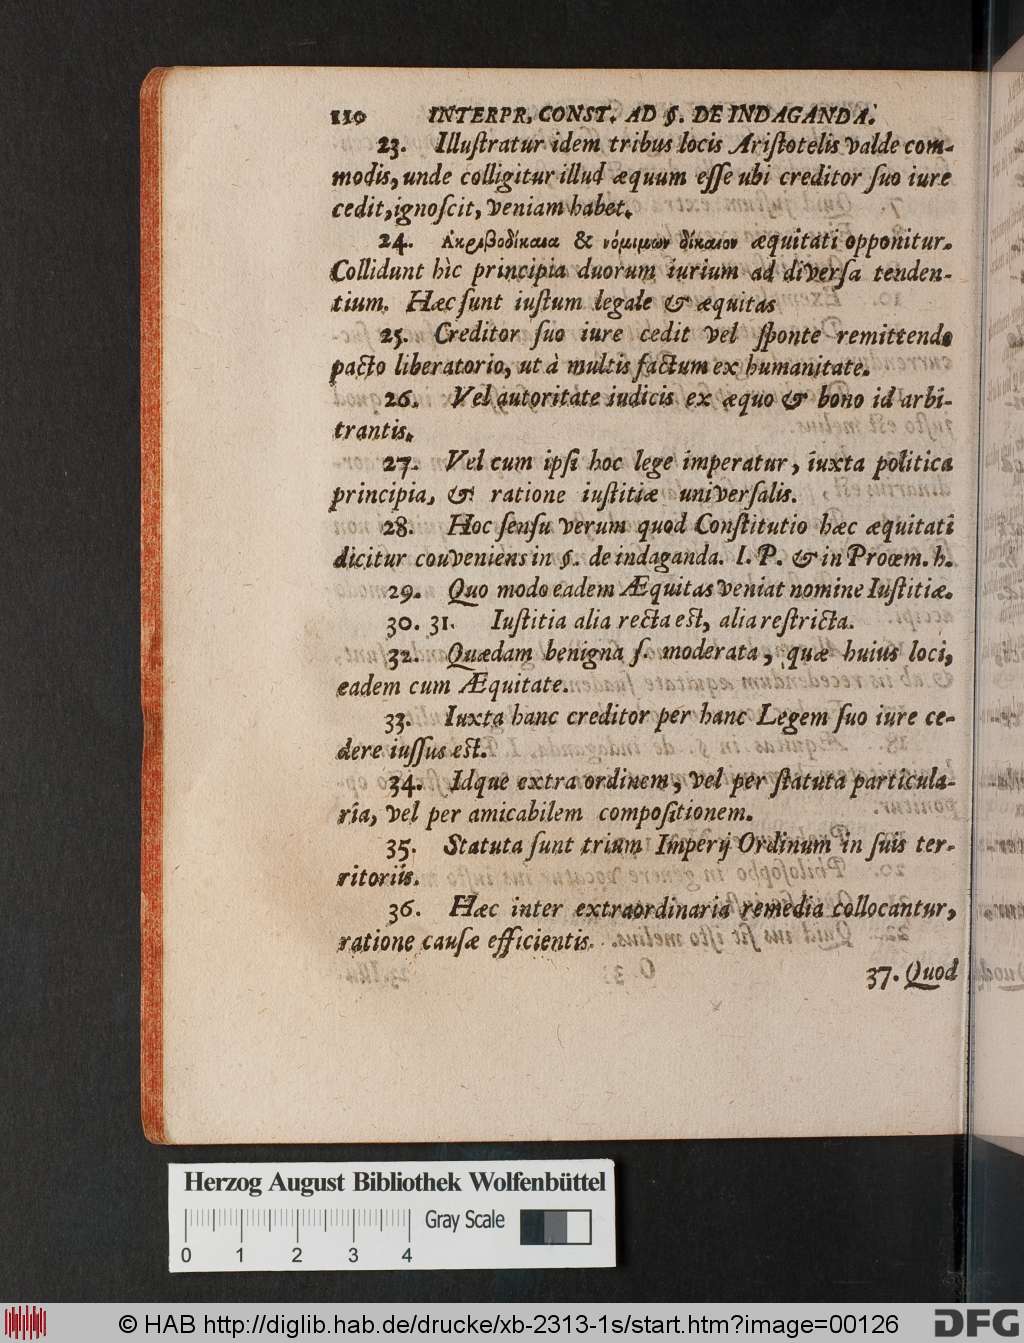 110 INTERPR. CONST. AD §. DE INDAGANDA.
23. Illuſtratur idem tribus locis Ariſtotelis valde com-
modis, unde colligitur illud æquum eſſe ubi creditor ſuo iure
cedit, ignoſcit, veniam habet.
24. Ακριβοδίκαια & νόμιμων δίκαιον æquitati opponitur.
Collidunt hìc principia duorum iurium ad diverſa tenden-
tium. Hæc ſunt iuſtum legale & æquitas
25. Creditor ſuo iure cedit vel ſponte remittendo
pacto liberatorio, ut à multis factum ex humanitate.
26. Vel autoritate iudicis ex æquo & bono id arbi-
trantis.
27. Vel cum ipſi hoc lege imperatur, iuxta politica
principia, & ratione iuſtitiæ univerſalis.
28. Hoc ſenſu verum quod Conſtitutio hæc æquitati
dicitur couveniens in §. de indaganda. I. P. & in Proœm. h.
29. Quo modo eadem Æquitas veniat nomine Iuſtitiæ.
30. 31. Iuſtitia alia recta eſt, alia reſtricta.
32. Quædam benigna ſ. moderata, quæ huius loci,
eadem cum Æquitate.
33. Iuxta hanc creditor per hanc Legem ſuo iure ce-
dere iuſſus eſt.
34. Idque extra ordinem, vel per ſtatuta particula-
ria, vel per amicabilem compoſitionem.
35. Statuta ſunt trium Imperij Ordinum in ſuis ter-
ritoriis.
36. Hæc inter extraordinaria remedia collocantur,
ratione cauſæ efficientis.
37. Quod
Herzog August Bibliothek Wolfenbüttel
Gray Scale
0 1 2 3 4
© HAB http://diglib.hab.de/drucke/xb-2313-1s/start.htm?image=00126
DFG